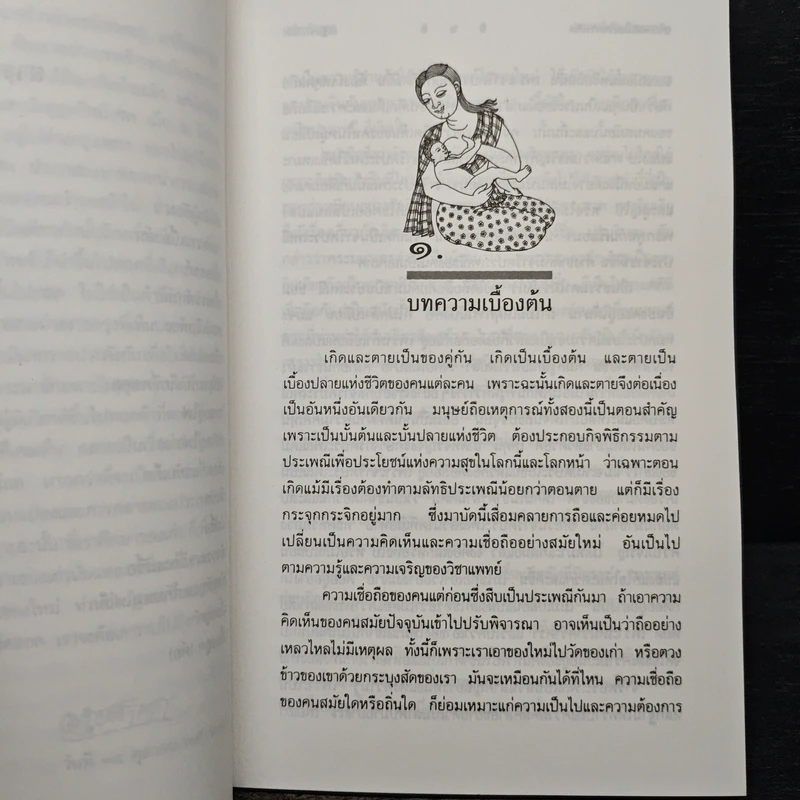 ๑.
บทความเบื้องต้น
เกิดและตายเป็นของคู่กัน เกิดเป็นเบื้องต้น และตายเป็น
เบื้องปลายแห่งชีวิตของคนแต่ละคน เพราะฉะนั้นเกิดและตายจึงต่อเนื่อง
เป็นอันหนึ่งอันเดียวกัน มนุษย์ถือเหตุการณ์ทั้งสองนี้เป็นตอนสำคัญ
เพราะเป็นบั้นต้นและบั้นปลายแห่งชีวิต ต้องประกอบกิจพิธีกรรมตาม
ประเพณีเพื่อประโยชน์แห่งความสุขในโลกนี้และโลกหน้า ว่าเฉพาะตอน
เกิดแม้มีเรื่องต้องทำตามลัทธิประเพณีน้อยกว่าตอนตาย แต่ก็มีเรื่อง
กระจุกกระจิกอยู่มาก ซึ่งมาบัดนี้เสื่อมคลายการถือและค่อยหมดไป
เปลี่ยนเป็นความคิดเห็นและความเชื่อถืออย่างสมัยใหม่ อันเป็นไป
ตามความรู้และความเจริญของวิชาแพทย์
ความเชื่อถือของคนแต่ก่อนซึ่งสืบเป็นประเพณีกันมา ถ้าเอาความ
คิดเห็นของคนสมัยปัจจุบันเข้าไปปรับพิจารณา อาจเห็นเป็นว่าถืออย่าง
เหลวไหลไม่มีเหตุผล ทั้งนี้ก็เพราะเราเอาของใหม่ไปวัดของเก่า หรือตวง
ข้าวของเขาด้วยกระบุงสัดของเรา มันจะเหมือนกันได้ที่ไหน ความเชื่อถือ
ของคนสมัยใดหรือถิ่นใด ก็ย่อมเหมาะแก่ความเป็นไปและความต้องการ